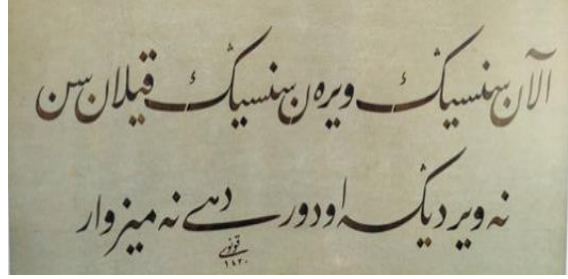 آلان سنسیڭ ویره‌ن سنسیڭ قیلان سن
نه ویردیڭسه اودور دخی نه میز وار
قونوی
١٤٢٠